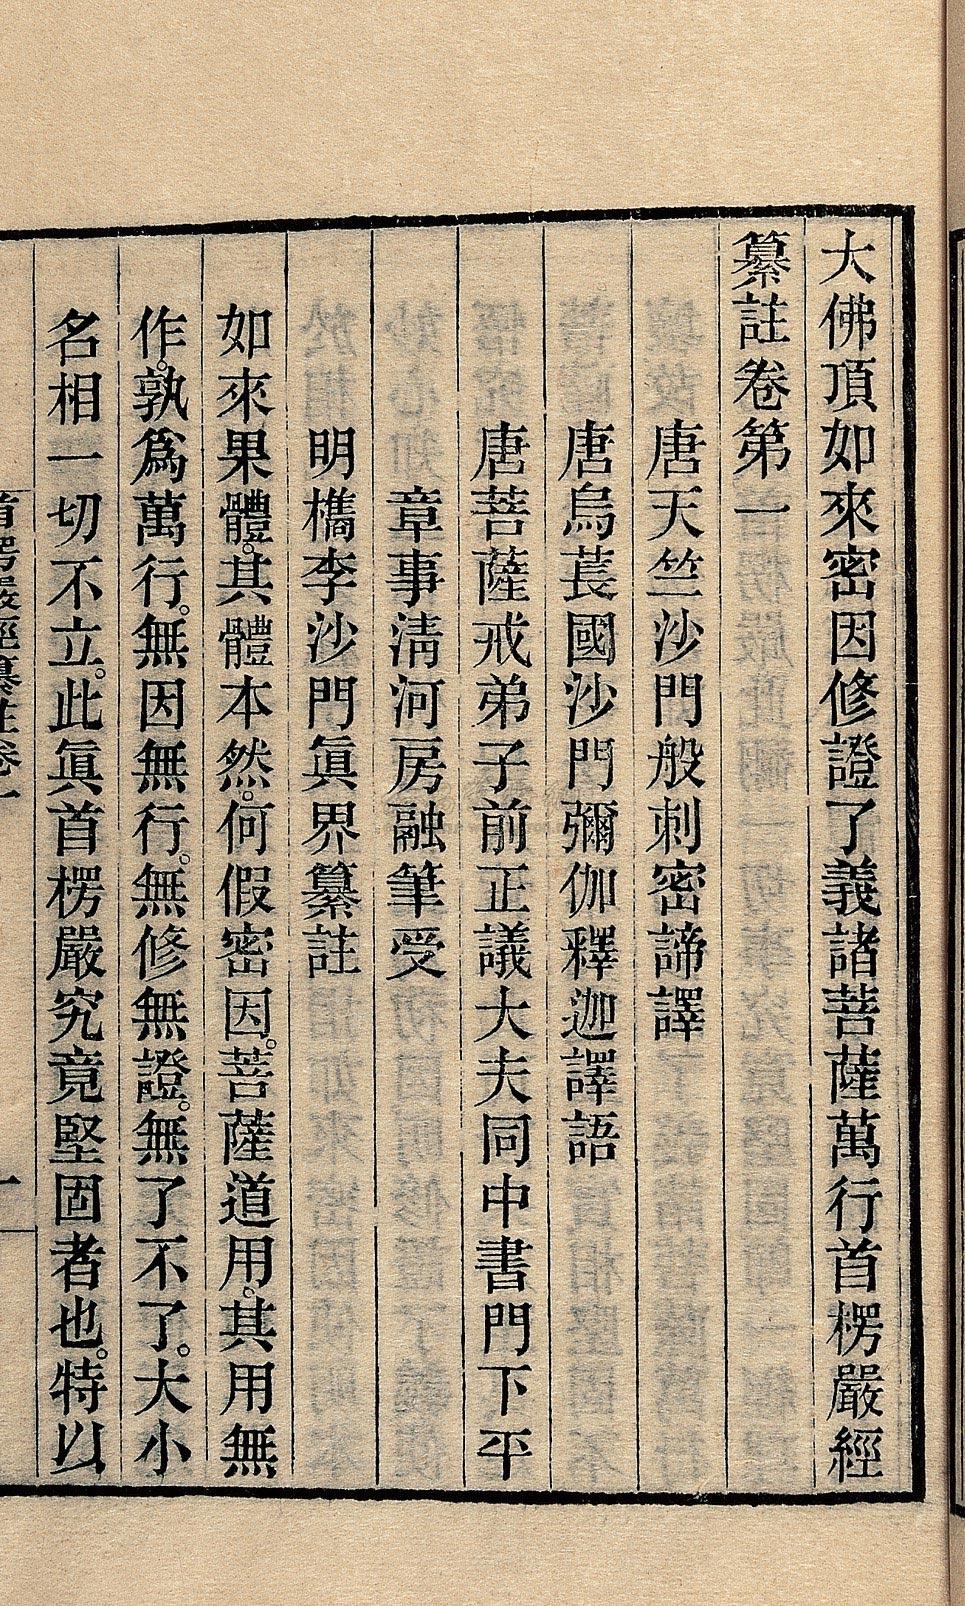 大佛頂如來密因修證了義諸菩薩萬行首楞嚴經
纂註卷第一
唐天竺沙門般刺密諦譯
唐烏萇國沙門彌伽釋迦譯語
唐菩薩戒弟子前正議大夫同中書門下平
章事淸河房融筆受
明檇李沙門眞界纂註
如來果體。其體本然。何假密因。菩薩道用。其用無
作。孰爲萬行。無因無行。無修無證。無了不了。大小
名相一切不立。此眞首楞嚴究竟堅固者也。特以
首楞嚴經纂註卷一
一